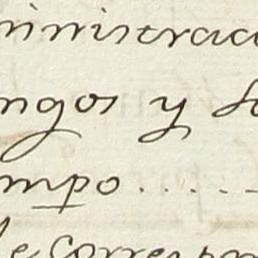 ministrac
ngos y
mpo.....
de correspon